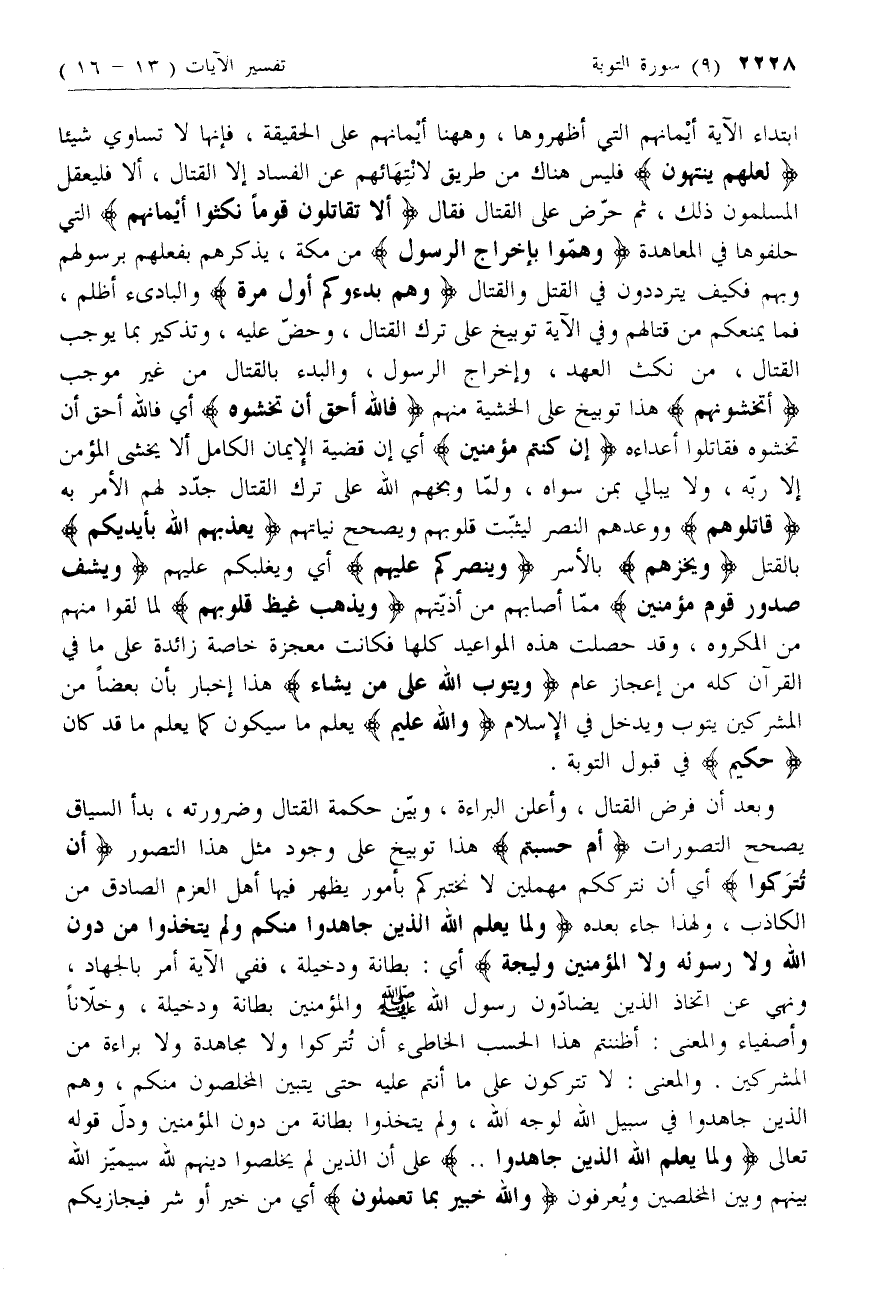 ٢٢٢٨ (٩) سورة التوبة تفسير الآيات ( ١٣ - ١٦ )
ابتداء الآية أيْمانهم التي أظهروها ، وههنا أيْمانهم على الحقيقة ، فإنها لا تساوي شيئا
﴿ لعلهم ينتهون ﴾ فليس هناك من طريق لانْتِهَائهم عن الفساد إلا القتال ، ألا فليعقل
المسلمون ذلك ، ثم حرّض على القتال فقال ﴿ ألا تقاتلون قوماً نكثوا أيْمانهم ﴾ التي
حلفوها في المعاهدة ﴿ وهمّوا بإخراج الرسول ﴾ من مكة ، يذكرهم بفعلهم برسولهم
وبهم فكيف يترددون في القتل والقتال ﴿ وهم بدءوكم أول مرة ﴾ والبادىء أظلم ،
فما يمنعكم من قتالهم وفي الآية توبيخ على ترك القتال ، وحضّ عليه ، وتذكير بما يوجب
القتال ، من نكث العهد ، وإخراج الرسول ، والبدء بالقتال من غير موجب
﴿ أتخشونهم ﴾ هذا توبيخ على الخشية منهم ﴿ فالله أحق أن تخشوه ﴾ أي فالله أحق أن
تخشوه فقاتلوا أعداءه ﴿ إن كنتم مؤمنين ﴾ أي إن قضية الإيمان الكامل ألا يخشى المؤمن
إلا ربّه ، ولا يبالي بمن سواه ، ولمّا وبخهم الله على ترك القتال جدّد لهم الأمر به
﴿ قاتلوهم ﴾ ووعدهم النصر ليثبّت قلوبهم ويصحح نياتهم ﴿ يعذبهم الله بأيديكم ﴾
بالقتل ﴿ ويخزهم ﴾ بالأسر ﴿ وينصركم عليهم ﴾ أي ويغلبكم عليهم ﴿ ويشف
صدور قوم مؤمنين ﴾ ممّا أصابهم من أذيّتهم ﴿ ويذهب غيظ قلوبهم ﴾ لما لقوا منهم
من المكروه ، وقد حصلت هذه المواعيد كلها فكانت معجزة خاصة زائدة على ما في
القرآن كله من إعجاز عام ﴿ ويتوب الله على من يشاء ﴾ هذا إخبار بأن بعضاً من
المشركين يتوب ويدخل في الإسلام ﴿ والله عليم ﴾ يعلم ما سيكون كما يعلم ما قد كان
﴿ حكيم ﴾ في قبول التوبة .
وبعد أن فرض القتال ، وأعلن البراءة ، وبيّن حكمة القتال وضرورته ، بدأ السياق
يصحح التصورات ﴿ أم حسبتم ﴾ هذا توبيخ على وجود مثل هذا التصور ﴿ أن
تُترَكوا ﴾ أي أن نترككم مهملين لا نختبركم بأمور يظهر فيها أهل العزم الصادق من
الكاذب ، ولهذا جاء بعده ﴿ ولما يعلم الله الذين جاهدوا منكم ولم يتخذوا من دون
الله ولا رسوله ولا المؤمنين وليجة ﴾ أي : بطانة ودخيلة ، ففي الآية أمر بالجهاد ،
ونهي عن اتخاذ الذين يضادّون رسول الله ﷺ والمؤمنين بطانة ودخيلة ، وخلّاناً
وأصفياء والمعنى : أظننتم هذا الحسب الخاطىء أن تُتركوا ولا مجاهدة ولا براءة من
المشركين . والمعنى : لا تتركون على ما أنتم عليه حتى يتبين المخلصون منكم ، وهم
الذين جاهدوا في سبيل الله لوجه الله ، ولم يتخذوا بطانة من دون المؤمنين ودلّ قوله
تعالى ﴿ ولما يعلم الله الذين جاهدوا .. ﴾ على أن الذين لم يخلصوا دينهم لله سيميّز الله
بينهم وبين المخلصين ويُعرفون ﴿ والله خبير بما تعملون ﴾ أي من خير أو شر فيجازيكم